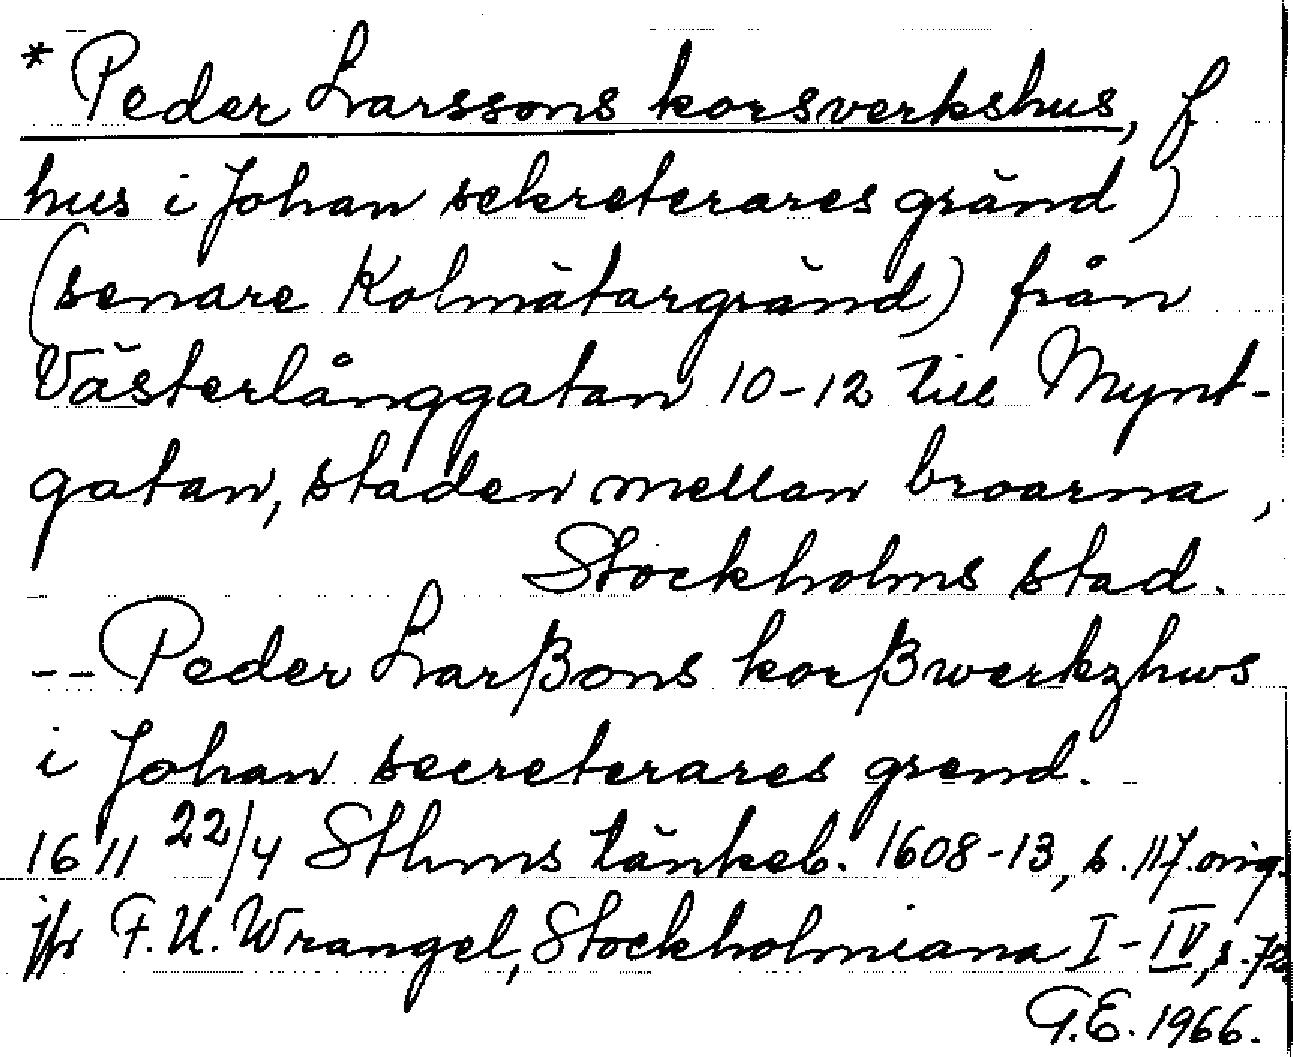 * Peder Larssons korsverkshus, f
hus i Johan sekreterares gränd)
(senare Kolmätargränd) från
Västerlånggatan 10-12 till Mynt-
gatan, staden mellan broarna,
Stockholms stad.
-- Peder Larßons korßwerkzhws
i Johan secreterares grend.
1611 22/4 Sthms tänkeb. 1608-13, s. 117. orig.
jfr F.U. Wrangel, Stockholmiana I-IV, s. 72.
G.E. 1966.